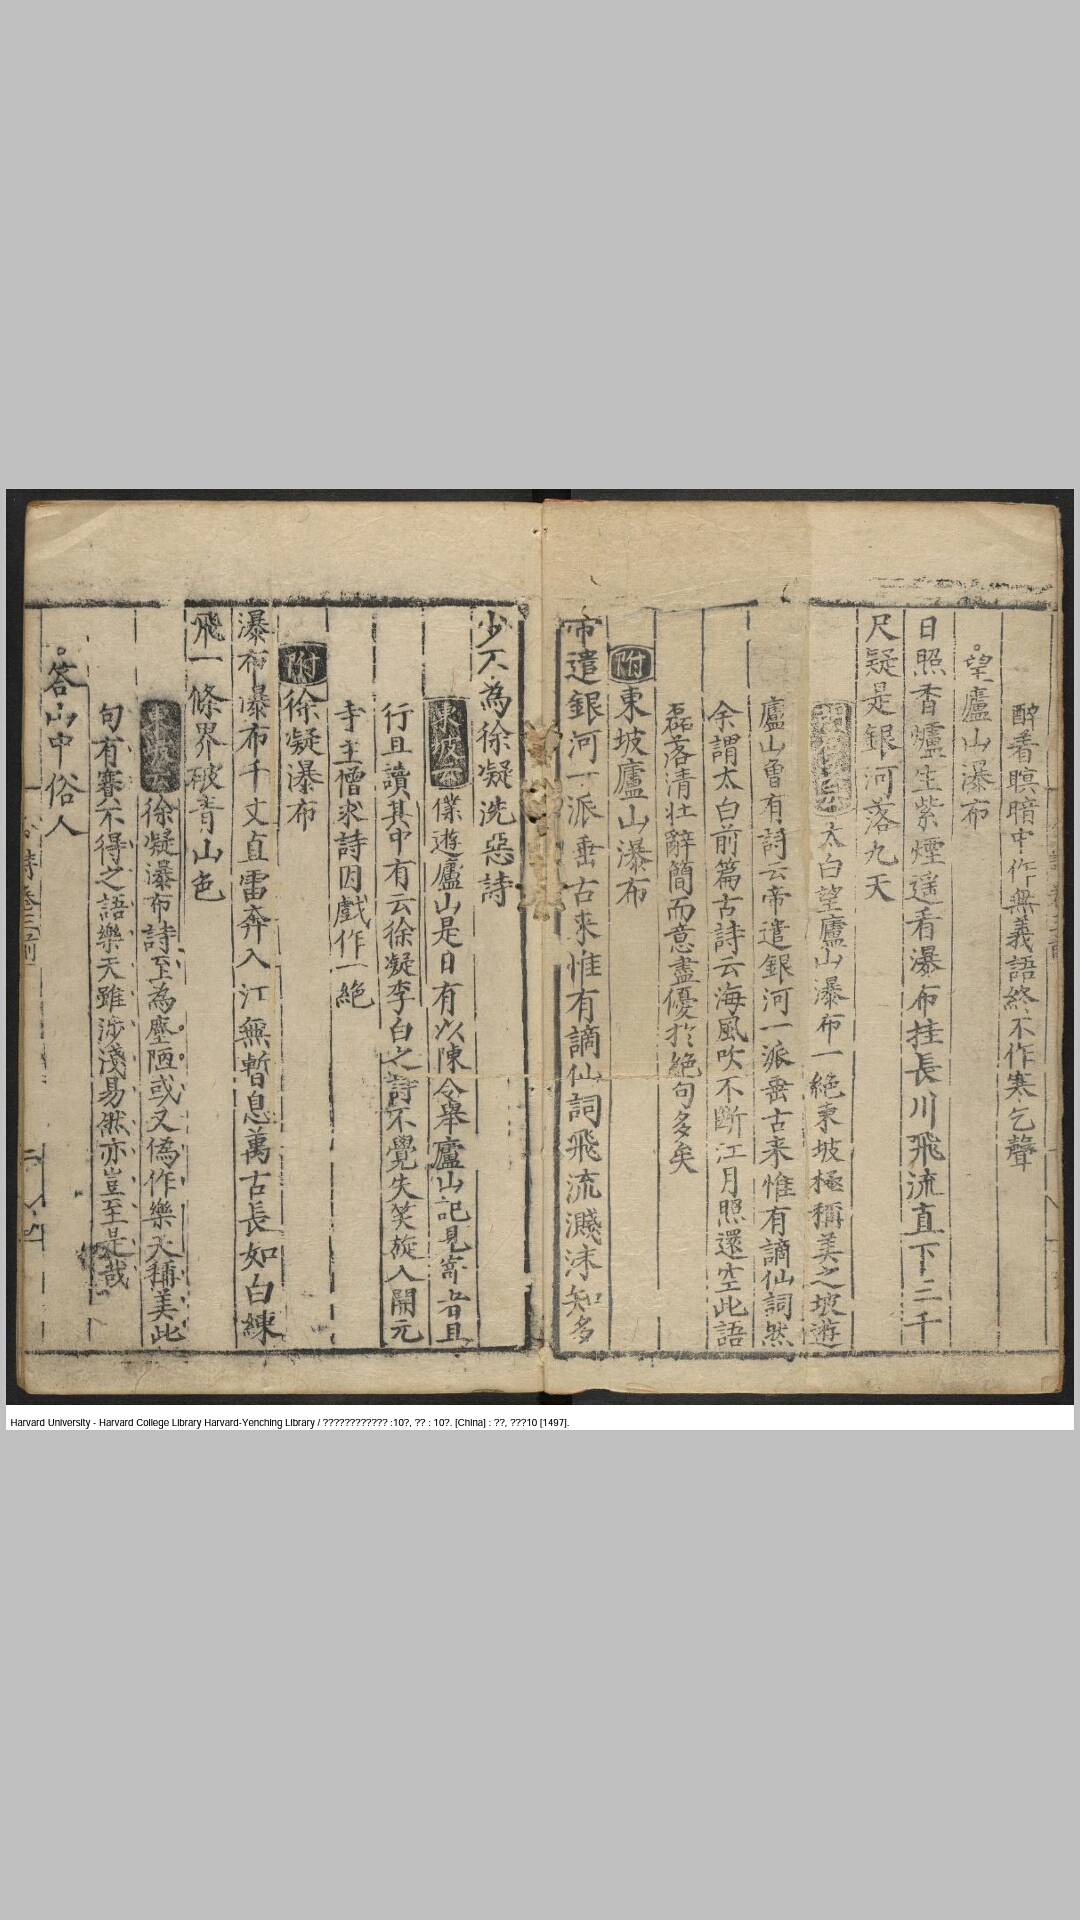 醉看暝暗中作無義語終不作寒乞聲
望廬山瀑布
日照香爐生紫煙遥看瀑布挂長川飛流直下三千
尺疑是銀河落九天
太白望廬山瀑布一絶東坡極稱美之坡遊
廬山曾有詩云帝遣銀河一派垂古来惟有謫仙詞然
余謂太白前篇古詩云海風吹不斷江月照還空此語
磊落清壮辭簡而意盡優扵絶句多矣
附東坡廬山瀑布
帝遣銀河一派垂古來惟有謫仙詞飛流濺沫知多
少不為徐凝洗惡詩
東坡云僕遊廬山是日有以陳令舉廬山記見寄者且
行且讀其中有云徐凝李白之詩不覺失笑旋入開元
寺主僧求詩因戲作一絶
附徐凝瀑布
瀑布瀑布千丈直雷奔入江無暫息萬古長如白練
飛一條界破青山色
東坡云徐凝瀑布詩至為塵陋或又偽作樂天稱美此
句有賽不得之語樂天雖涉淺易然亦豈至是哉
答山中俗人
Harvard University - Harvard College Library Harvard-Yenching Library / ???????????? :10?, ?? : 10?. [China] : ??, ???10 [1497].